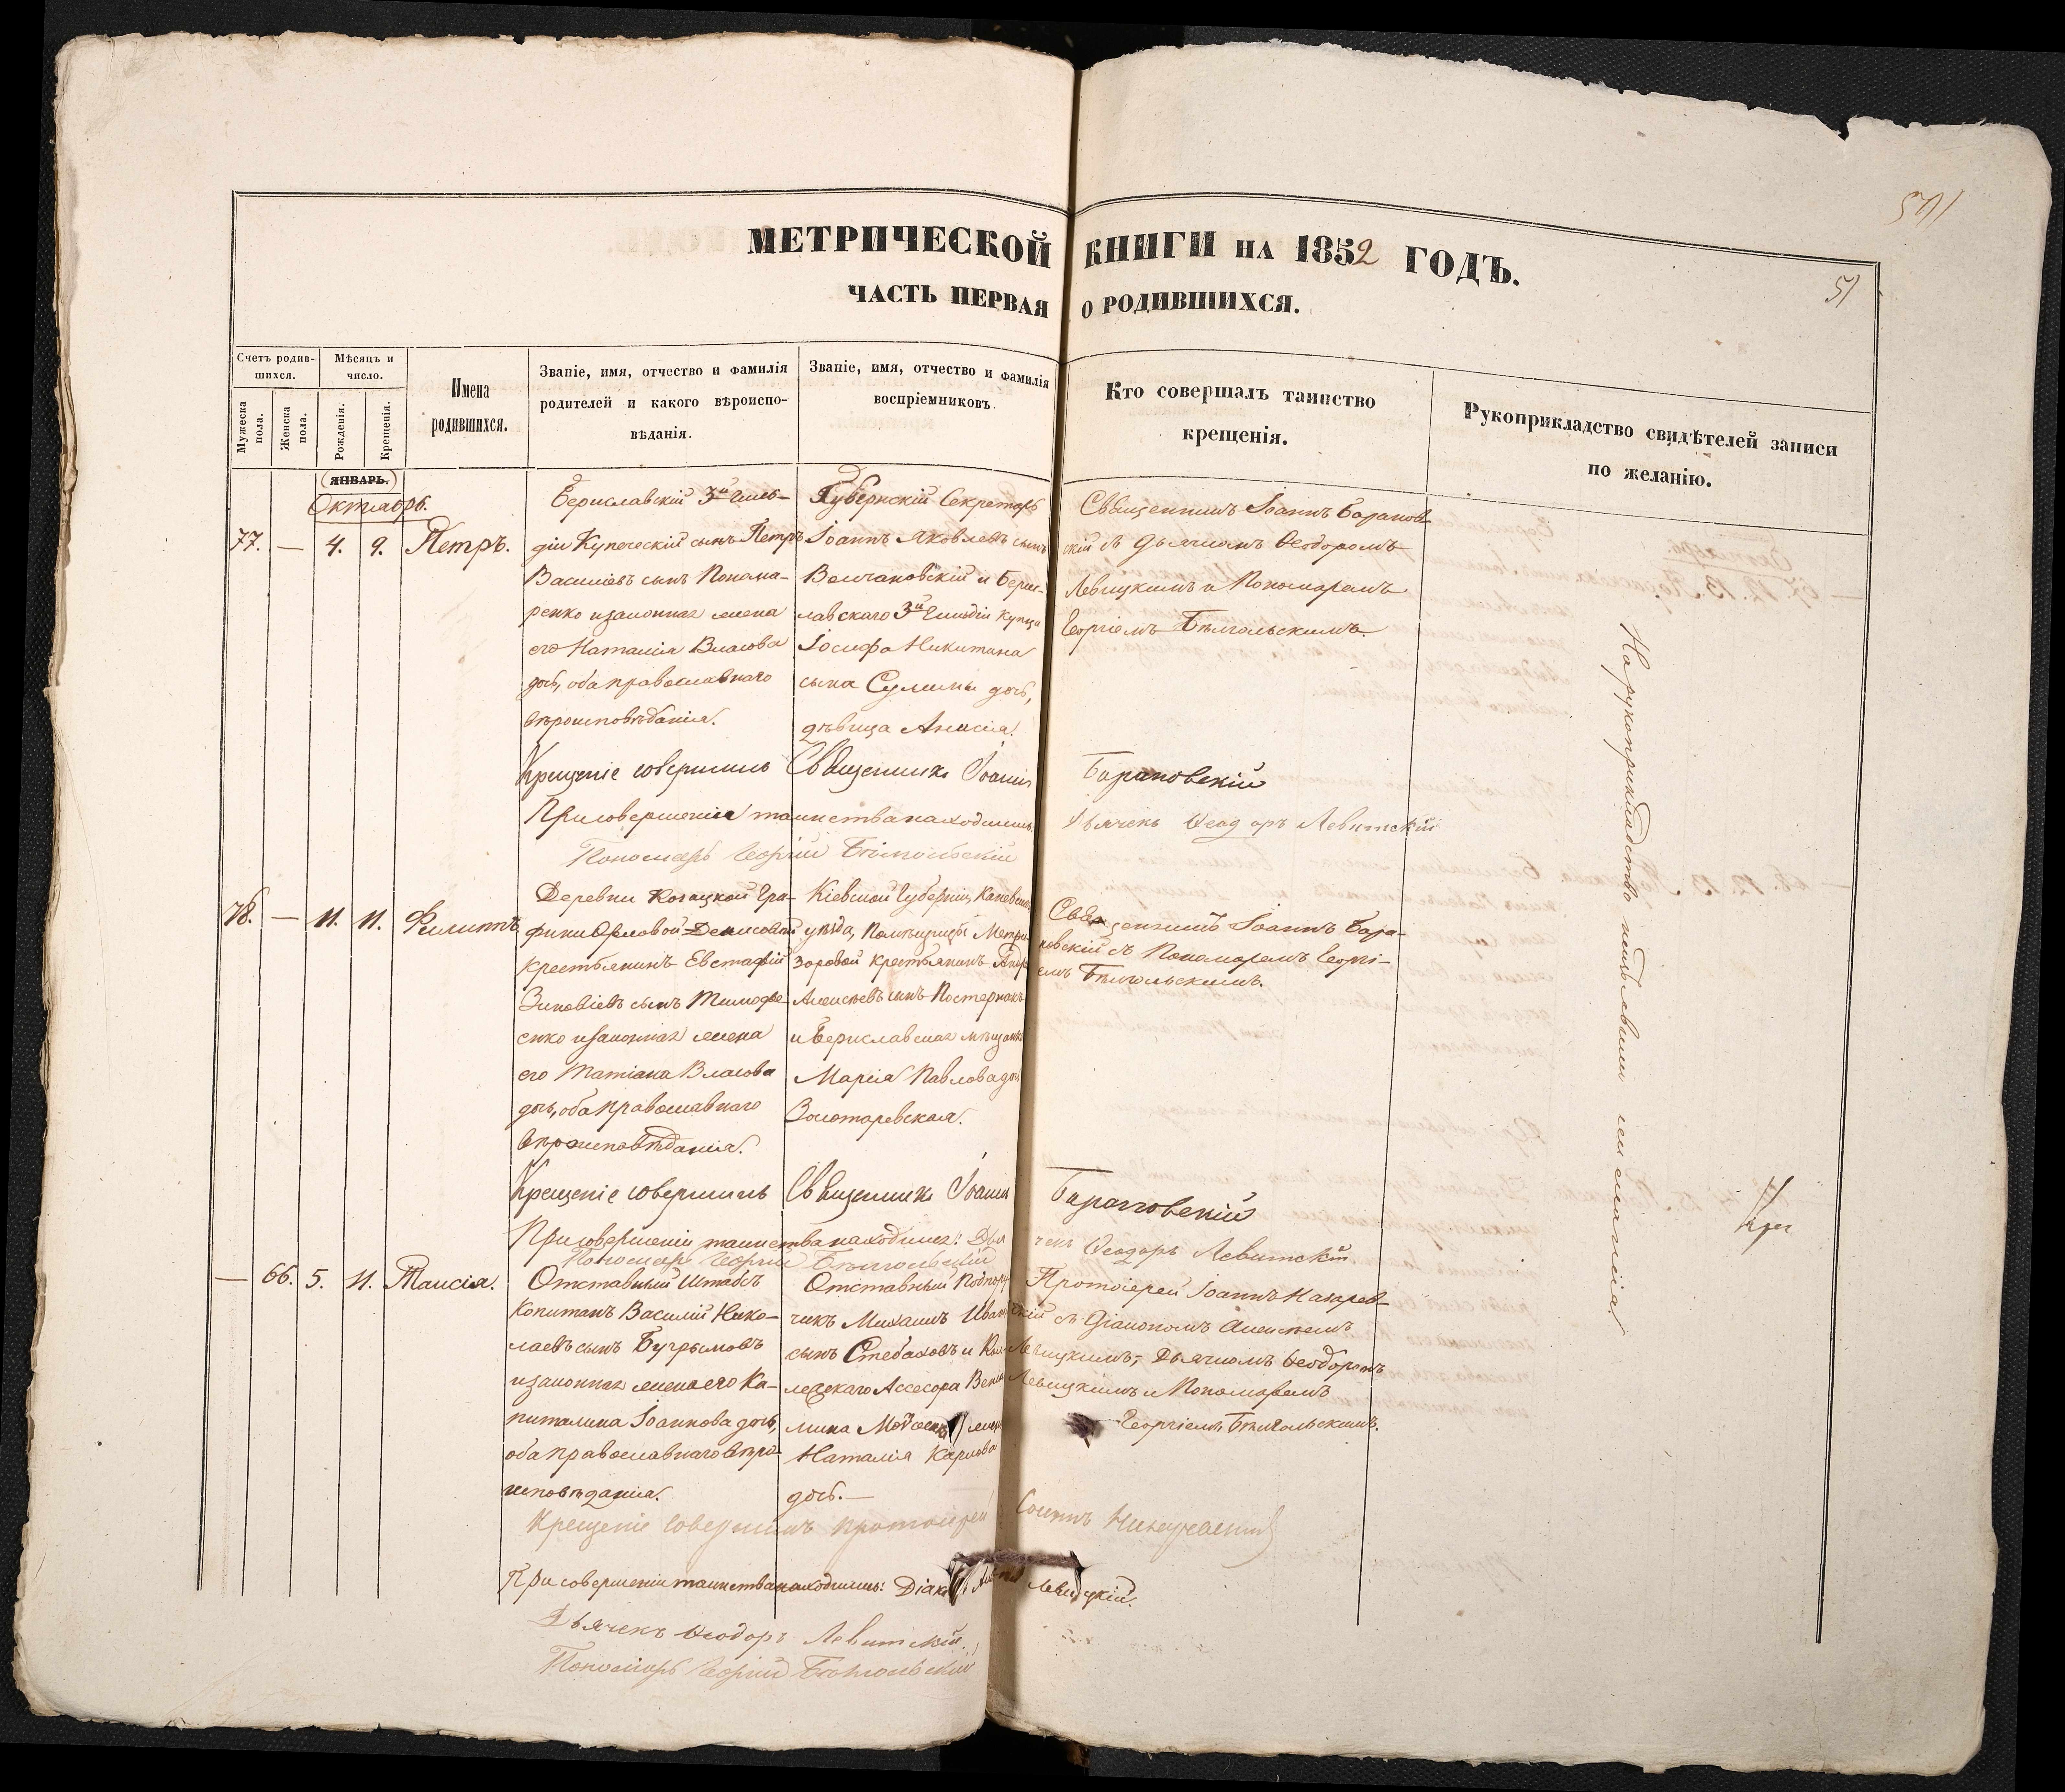 501
51
МЕТРИЧЕСКОЙ КНИГИ НА 1852 ГОДЪ.
ЧАСТЬ ПЕРВАЯ О РОДИВШИХСЯ.
Счетъ родив-
шихся.
Мужеска пола.
Женска пола.
Мѣсяцъ и
число.
Рожденія.
Крещенія.
Имена
родившихся.
Званіе, имя, отчество и фамилія
родителей и какого вѣроиспо-
вѣданія.
Званіе, имя, отчество и фамилія
воспріемниковъ.
Кто совершалъ таинство
крещенія.
Рукоприкладство свидѣтелей записи
по желанію.
ЯНВАРЬ.
Октябрь.
77. — 4. 9. Петръ.
Бериславскій 3й Гиль-
діи Купеческій сынъ Петръ
Васильевъ сынъ Понома-
ренко и законная жена
его Наталія Власова
дочь, оба православнаго
вѣроисповѣданія.
Губернскій Секретарь
Іоаннъ Яковлевъ сынъ
Волчановскій и Берис-
лавскаго 3й Гильдіи Купца
Іосифа Никитина
сына Сулимы дочь,
дѣвица Анисія.
Священникъ Іоаннъ Баранов-
скій съ Дьячкомъ Ѳеодоромъ
Левицкимъ и Пономаремъ
Георгіемъ Бѣлгольскимъ.
Крещеніе совершилъ Священникъ Іоаннъ Барановскій
При совершеніи таинства находились: Дьячекъ Ѳеодоръ Левитскій
Пономарь Георгій Бѣлгольскій
78. — 11. 11. Филиппъ
Деревни Козацкой Гра-
фини Орловой-Денисовой
крестьянинъ Евстафій
Зиновіевъ сынъ Тимофе-
енко и законная жена
его Татіана Власова
дочь, оба православнаго
вѣроисповѣданія.
Кіевской Губерніи, Каневскаго
уѣзда, Помѣщицы
крестьянинъ
Алексѣевъ сынъ Постернакъ
и Бериславская мѣщанка
Марія Павлова дочь
Золотаревская.
Священникъ Іоаннъ Бара-
новскій съ Пономаремъ Георгі-
емъ Бѣлгольскимъ.
Крещеніе совершилъ Священникъ Іоаннъ Барановскій
При совершеніи таинства находились: Дьячекъ Ѳеодоръ Левитскій.
Пономарь Георгій Бѣлгольскій
— 66. 5. 11. Таисія.
Отставный Штабсъ
Капитанъ Василій Нико-
лаевъ сынъ Бугрымовъ
и законная жена его Ка-
питалина Іоаннова дочь,
оба православнаго вѣро-
исповѣданія.
Отставный Подпору-
чикъ Михаилъ Ивановъ
сынъ Стебаховъ и Кол-
лежскаго Ассесора Веніа-
мина жена
Наталія Карлова
дочь.—
Протоіерей Іоаннъ
съ Діакономъ Алексѣемъ
Левицкимъ, Дьячкомъ Ѳеодоромъ
Левицкимъ и Пономаремъ
Георгіемъ Бѣлгольскимъ.
Крещеніе совершилъ протоіерей
При совершеніи таинства находились: Діаконъ Левицкій.
Дьячекъ Ѳеодоръ Левитскій.
Пономарь Георгій Бѣлгольскій
На рукоприкладство